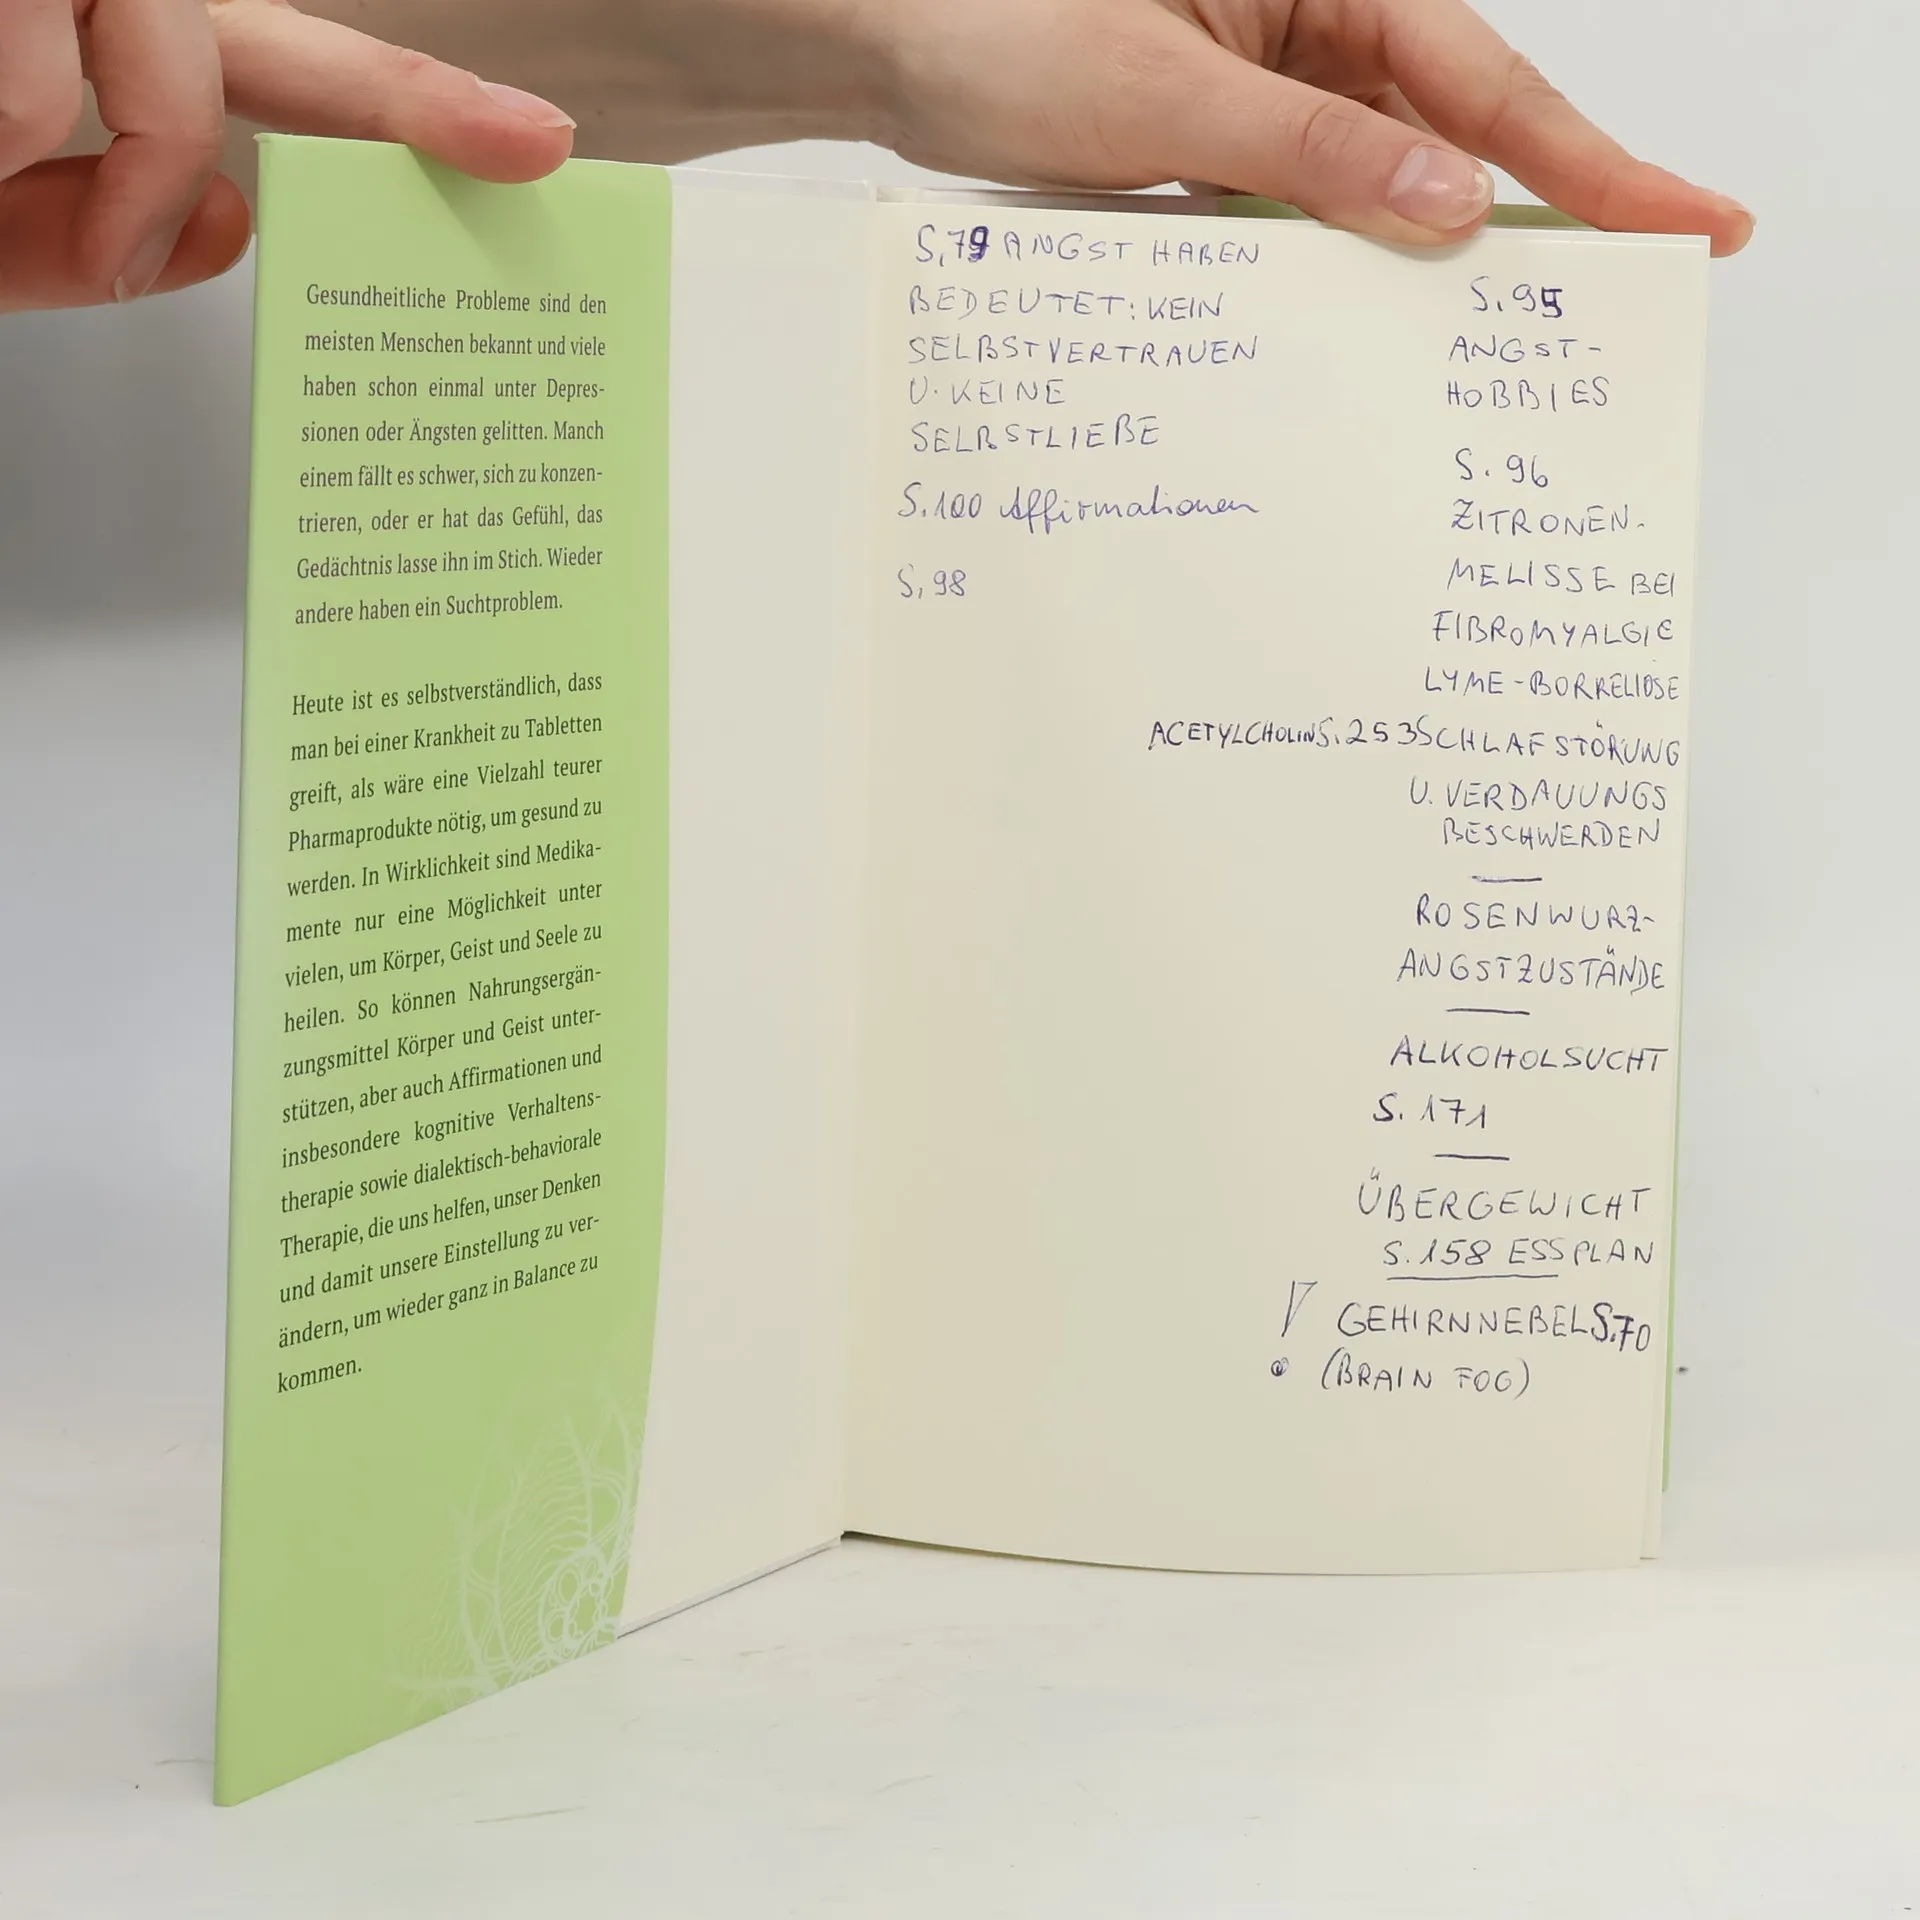 Gesundheitliche Probleme sind den
meisten Menschen bekannt und viele
haben schon einmal unter Depres-
sionen oder Ängsten gelitten. Manch
einem fällt es schwer, sich zu konzen-
trieren, oder er hat das Gefühl, das
Gedächtnis lasse ihn im Stich. Wieder
andere haben ein Suchtproblem.
Heute ist es selbstverständlich, dass
man bei einer Krankheit zu Tabletten
greift, als wäre eine Vielzahl teurer
Pharmaprodukte nötig, um gesund zu
werden. In Wirklichkeit sind Medika-
mente nur eine Möglichkeit unter
vielen, um Körper, Geist und Seele zu
heilen. So können Nahrungsergän-
zungsmittel Körper und Geist unter-
stützen, aber auch Affirmationen und
insbesondere kognitive Verhaltens-
therapie sowie dialektisch-behaviorale
Therapie, die uns helfen, unser Denken
und damit unsere Einstellung zu ver-
ändern, um wieder ganz in Balance zu
kommen.
S. 79 ANGST HABEN
BEDEUTET: KEIN
SELBSTVERTRAUEN
U. KEINE
SELBSTLIEBE
S. 100 Affirmationen
S. 98
S. 95
ANGST-
HOBBIES
S. 96
ZITRONEN-
MELISSE BEI
FIBROMYALGIE
LYME-BORRELIOSE
ACETYLCHOLIN S. 253 SCHLAFSTÖRUNG
U. VERDAUUNGS
BESCHWERDEN
ROSENWURZ-
ANGSTZUSTÄNDE
ALKOHOLSUCHT
S. 171
ÜBERGEWICHT
S. 158 ESSPLAN
! GEHIRNNEBEL S. 70
(BRAIN FOG)